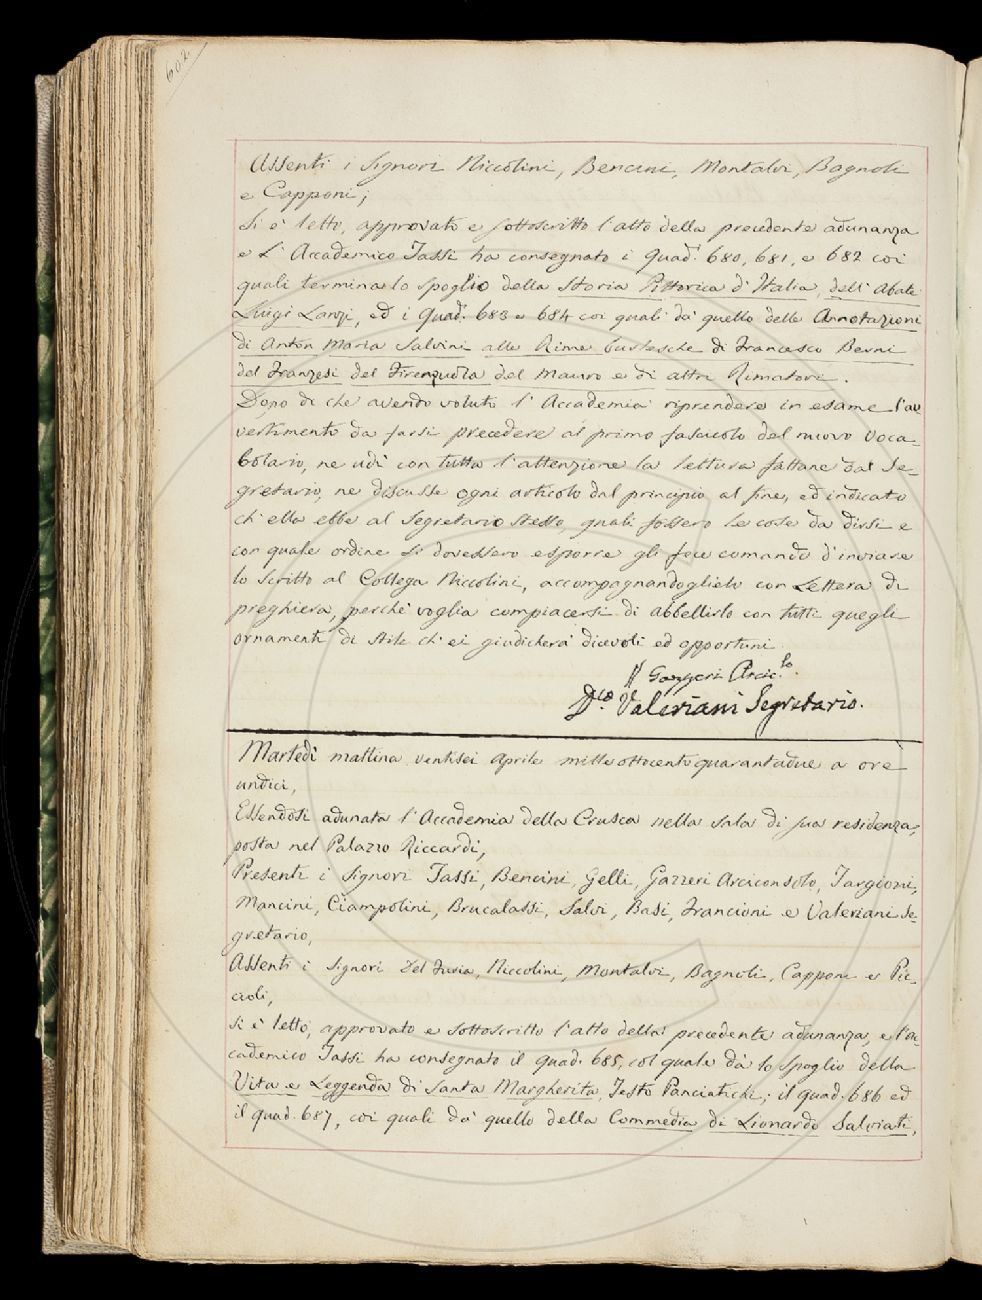 602.
Assenti i Signori Niccolini, Bencini, Montalvi, Bagnoli
e Capponi;
Si è letto, approvato e sottoscritto l'atto della precedente adunanza
e L'Accademico Tassi ha consegnato i Quad. 680, 681, e 682 coi
quali termina lo spoglio della Storia Pittorica d'Italia, dell'Abate
Luigi Lanzi, ed i Quad. 683 e 684 coi quali dà quello delle Annotazioni
di Anton Maria Salvini alle Rime burlesche di Francesco Berni
del Franzesi del Firenzuola del Mauro e di altri Rimatori.
Dopo di che avendo voluto l'Accademia riprendere in esame l'av
vertimento da farsi precedere al primo fascicolo del nuovo Voca-
bolario, ne udì con tutta l'attenzione la lettura fattane dal Se-
gretario, ne discusse ogni articolo dal principio al fine, ed indicato
ch'ella ebbe al Segretario stesso, quali fossero le cose da dirsi e
con quale ordine si dovessero esporre gli fece comando d'inviare
lo scritto al Collega Niccolini, accompagnandoglielo con Lettera di
preghiera, perchè voglia compiacersi di abbellirlo con tutti quegli
ornamenti di stile ch'ei giudicherà dicevoli ed opportuni.
G Gazzeri Arcic.lo
D.co Valeriani Segretario.
Martedì mattina ventisei Aprile mille ottocentoquarantadue a ore
undici,
Essendosi adunata l'Accademia della Crusca nella sala di sua residenza,
posta nel Palazzo Riccardi,
Presenti i Signori Tassi, Bencini, Gelli, Gazzeri Arciconsolo, Targioni,
Mancini, Ciampolini, Brucalassi, Salvi, Basi, Francioni e Valeriani Se-
gretario,
Assenti i Signori Del Furia, Niccolini, Montalvi, Bagnoli, Capponi e Pic-
cioli,
Si è letto, approvato e sottoscritto l'atto della precedente adunanza, e l'Ac-
cademico Tassi ha consegnato il quad. 685, col quale dà lo Spoglio della
Vita e Leggenda di Santa Margherita, Testo Panciatichi; il quad. 686 ed
il quad. 687, coi quali dà quello della Commedia di Lionardo Salviati,